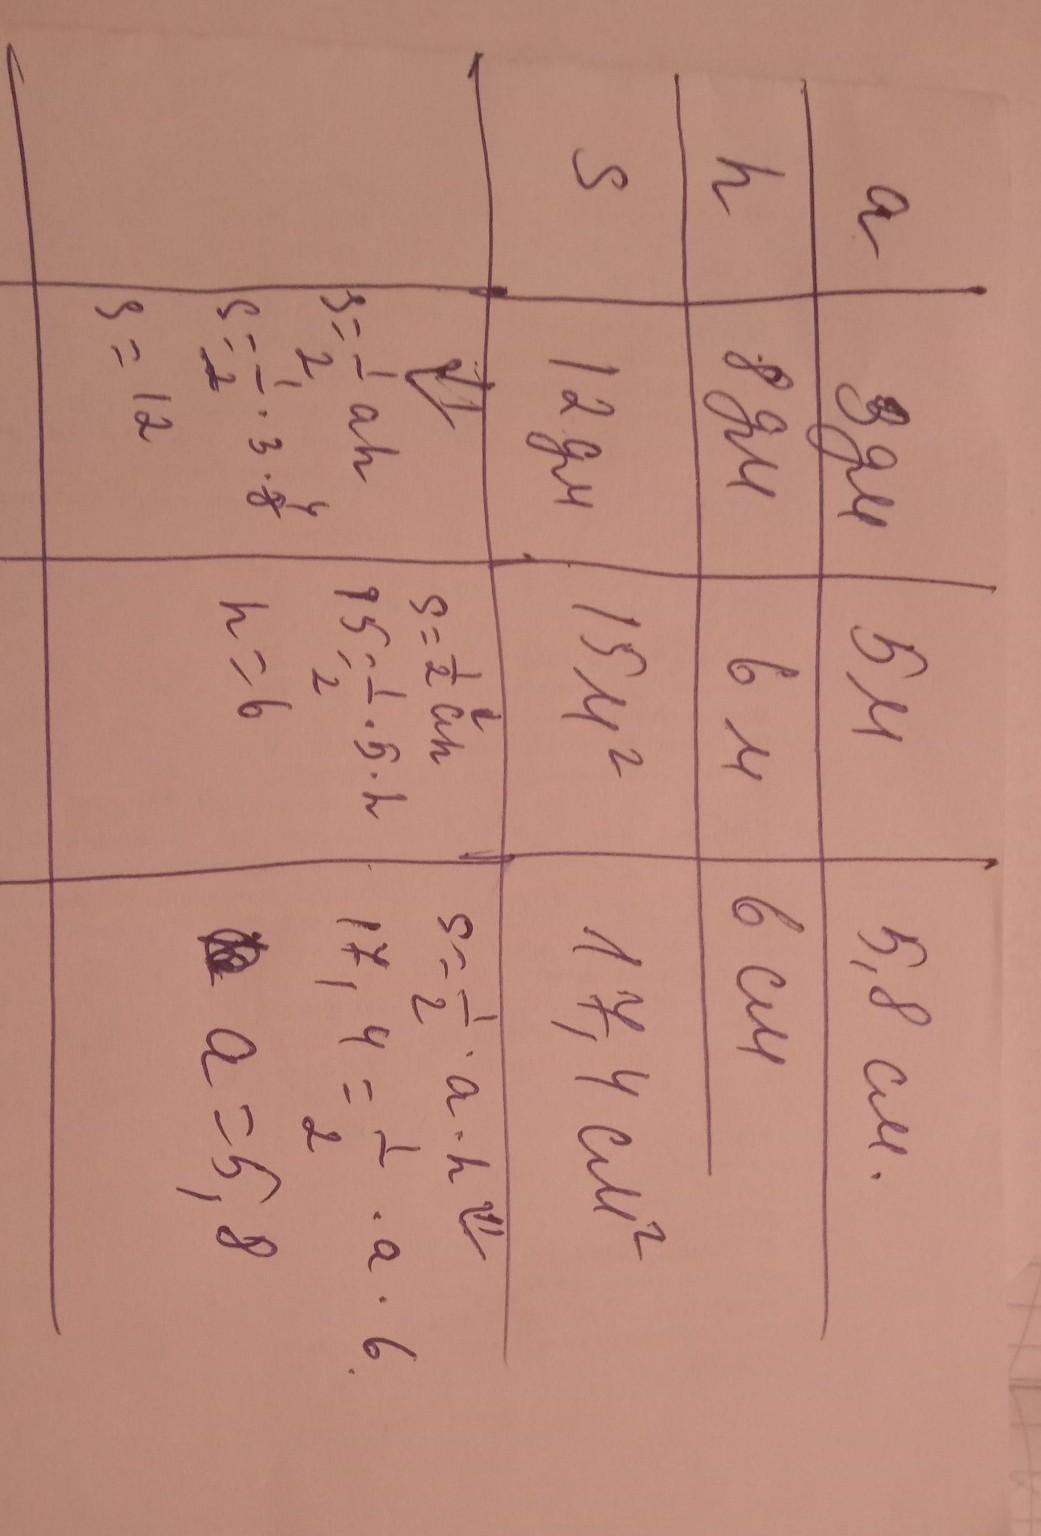 a 3дм 5м 5,8 см.
h 8дм 6 м 6 см
S 12дм 15м² 17,4 см²
S = 1/2 ah
S = 1/2 · 3 · 8 4
S = 12
S = 1/2 ah
15 = 1/2 · 5 · h
h = 6
S = 1/2 · a · h
17,4 = 1/2 · a · 6.
a = 5,8